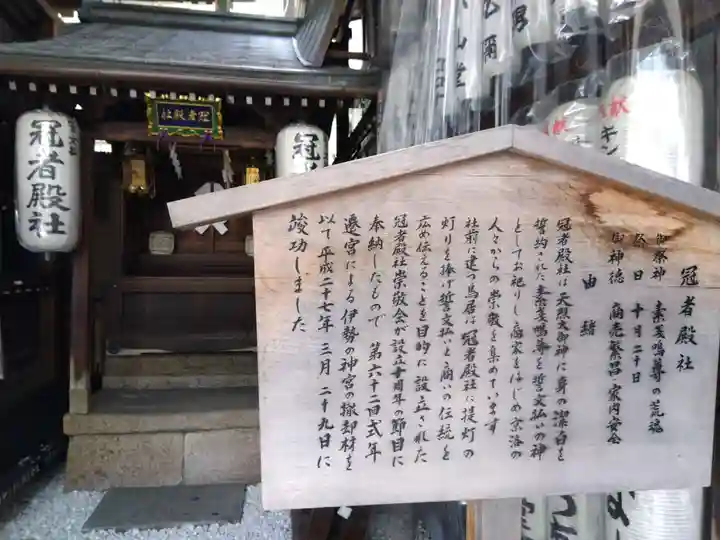 冠者殿社
御祭神 素戔嗚尊の荒魂
祭日 十月二十日
御神徳 商売繁昌・家内安全
由緒
冠者殿社は天照大御神に身の潔白を
誓約された素戔嗚尊を誓文払いの神
としてお祀りし商家をはじめ京洛の
人々からの崇敬を集めています
社前に建つ鳥居は冠者殿社に提灯の
灯りを捧げ誓文払いと商いの伝統を
広め伝えることを目的に設立された
冠者殿社崇敬会が設立十周年の節目に
奉納したもので 第六十二回式年
遷宮による伊勢の神宮の撤却材を
以て平成二十七年 三月 二十九日に
竣功しました
冠者殿社
冠者殿社
冠
献
キン